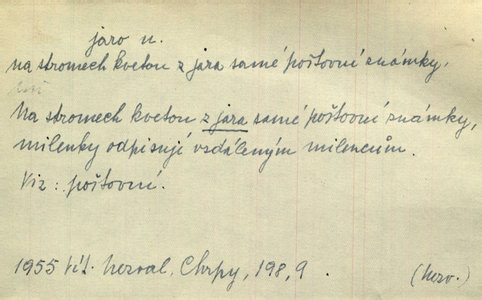 jaro n.
na stromech kvetou z jara samé poštovní známky,
Na stromech kvetou z jara samé poštovní známky,
milenky odpisují vzdáleným milencům.
Viz: poštovní.
1955 Vít. Nezval, Chrpy, 198, 9. (Nezv.)